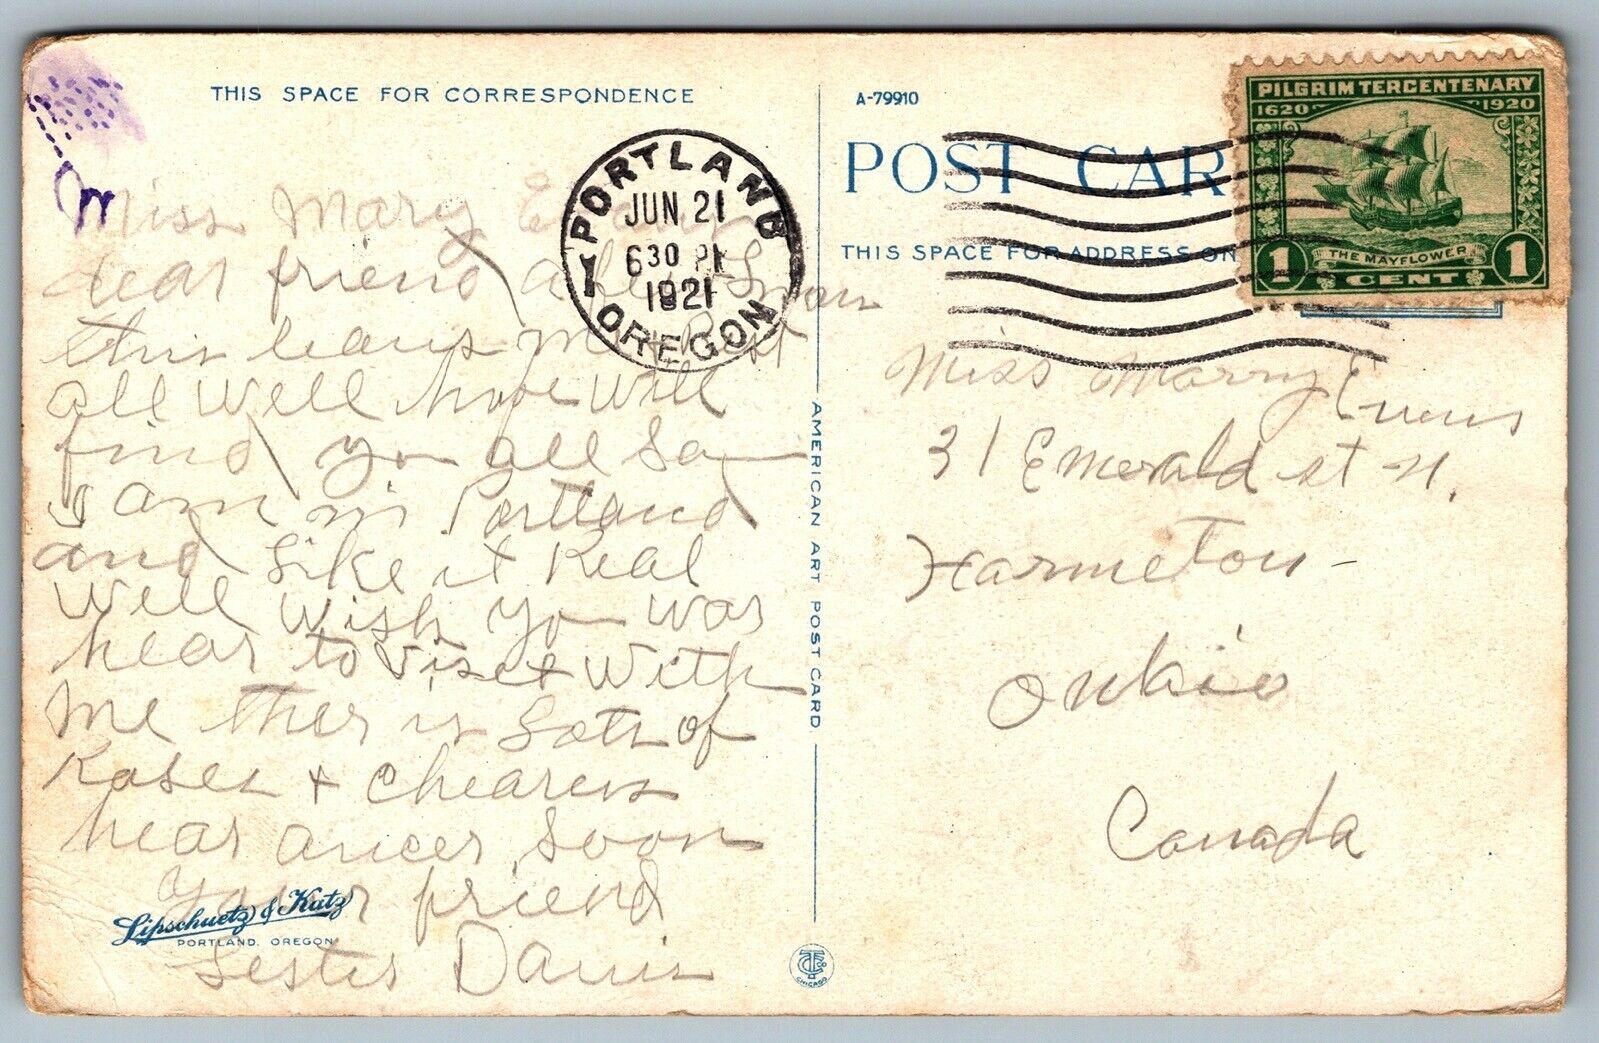 THIS SPACE FOR CORRESPONDENCE
Miss Mary
dear friend
this leavs
all well hope will
find you all Sa
I am in Portland
and Like it Real
Well Wish you was
hear to viset With
Me ther is Lots of
Roses + Chearens
hear ancer soon
Your friend
Sester Davis
Lipschuetz & Katz
PORTLAND, OREGON
PORTLAND
JUN 21
630 PM
1921
OREGON
1
AMERICAN ART POST CARD
CT&Co
CHICAGO
A-79910
POST CAR
THIS SPACE FOR ADDRESS ON
PILGRIM TERCENTENARY
1620 1920
THE MAYFLOWER
1 CENT 1
Miss Marry Evens
31 Emerald st N.
Harmeton
Onkio
Canada